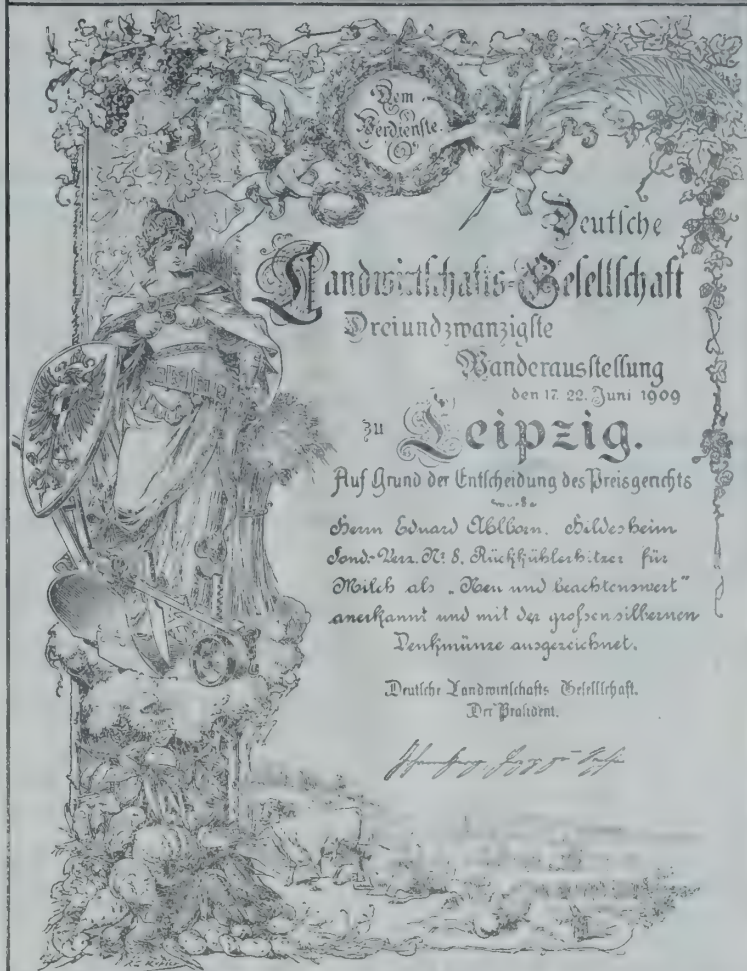 Dem
Verdienste.
Deutsche
Landwirtschafts-Gesellschaft
Dreiundzwanzigste
Wanderausstellung
den 17. 22. Juni 1909
zu Leipzig.
Auf Grund der Entscheidung des Preisgerichts
Herrn Eduard Ahlborn. Hildesheim
Sond.-Verz. Nr 8. Rückkühlerhitzer für
Milch als „Neu und beachtenswert"
anerkannt und mit der großen silbernen
Denkmünze ausgezeichnet.
Deutsche Landwirtschafts Gesellschaft.
Der Präsident.